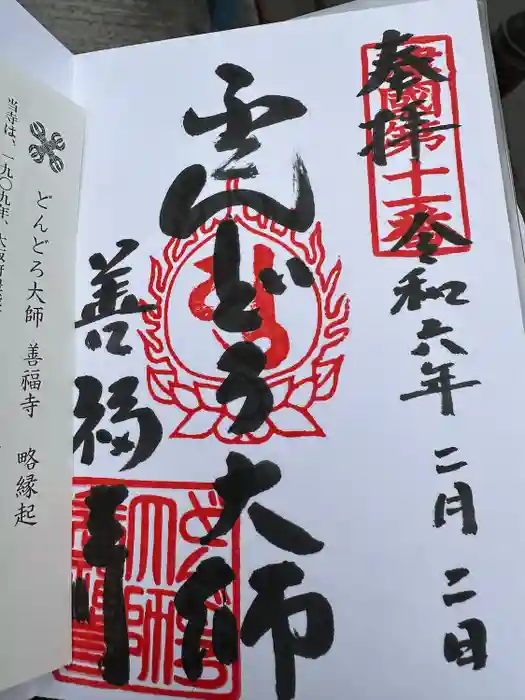 奉拝
令和六年二月二日
どんどろ大師
善福寺
どんどろ大師 善福寺 略縁起
当寺は、一九〇九年、大阪府豊能